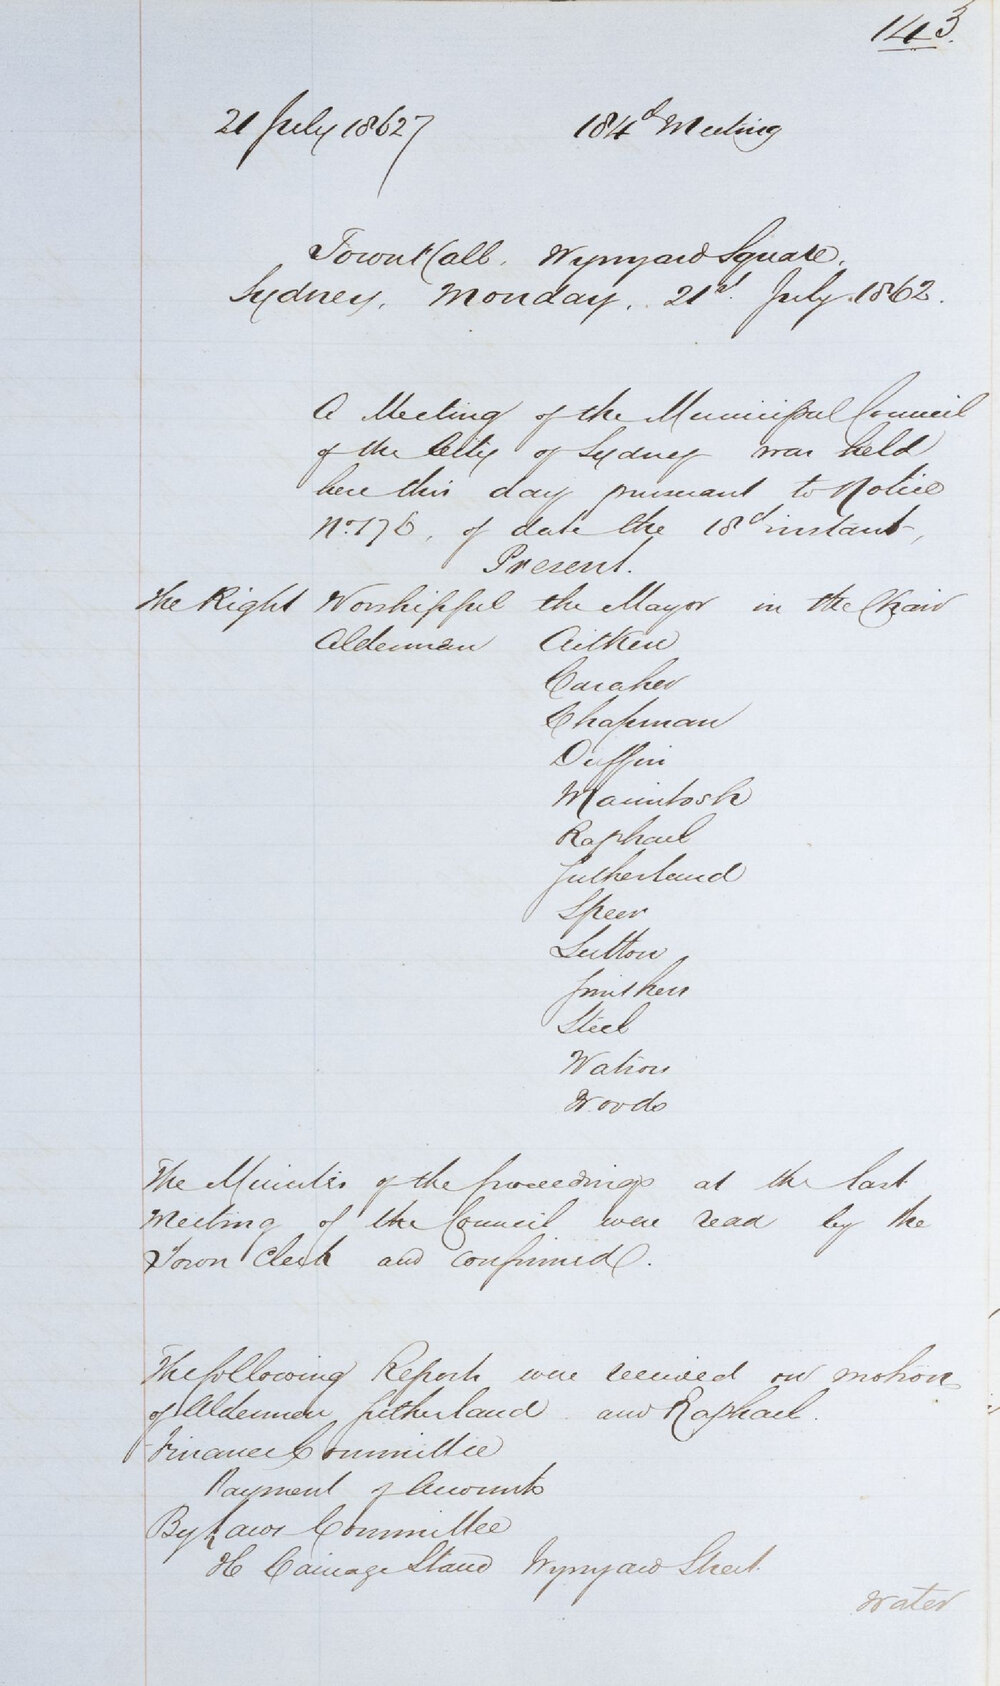 143.
21 July 1862 184th Meeting
Town Hall, Wynyard Square,
Sydney, Monday, 21st July 1862.
A Meeting of the Municipal Council
of the City of Sydney was held
here this day pursuant to Notice
No. 176, of date the 18th instant,
Present.
The Right Worshipful the Mayor in the Chair
Aldermen Aitken
Caraher
Chapman
Duffin
Macintosh
Raphael
Sutherland
Speer
Sutton
Smithers
Steel
Watson
Woods
The Minutes of the proceedings at the last
Meeting of the Council were read by the
Town Clerk and confirmed.
The following Reports were received on motion
of Aldermen Sutherland and Raphael.
Finance Committee
Payment of Accounts
By Laws Committee
Carriage Stand Wynyard Street.
Water